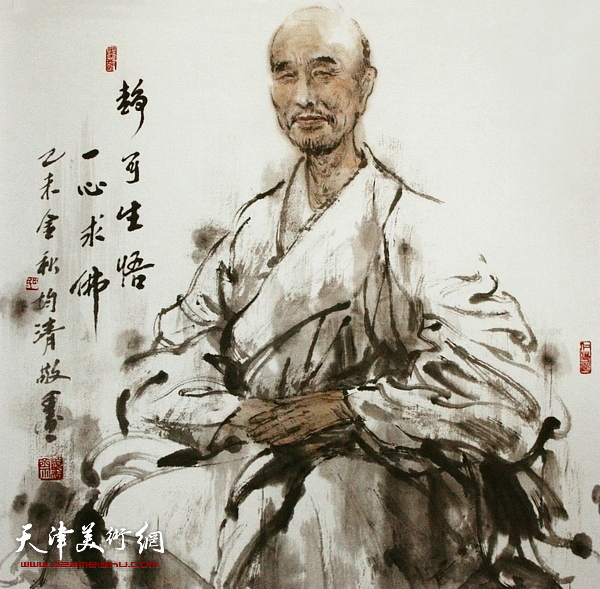 静可生悟
一心求佛
乙未金秋均清敬画
天津美術網
www.022meishu.com